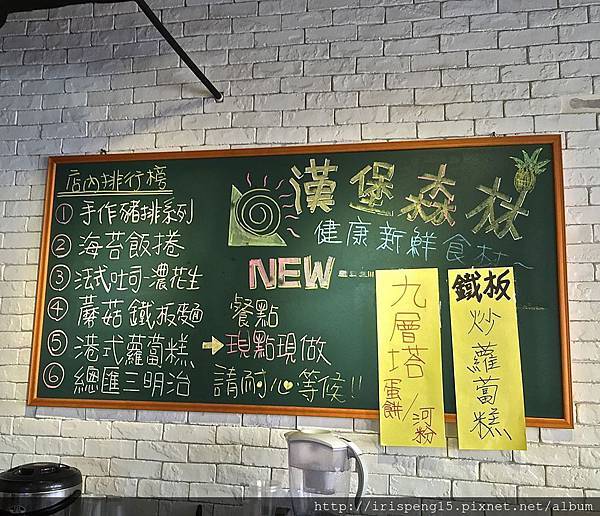 店內排行榜
① 手作豬排系列
② 海苔飯捲
③ 法式吐司·濃花生
④ 蘑菇鐵板麵
⑤ 港式蘿蔔糕
⑥ 總匯三明治
漢堡森林
健康新鮮食材~
NEW
餐點
→現點現做
請耐心等候!!
九層塔
蛋餅/河粉
鐵板
炒蘿蔔糕
http://irispeng15.pixnet.net/album